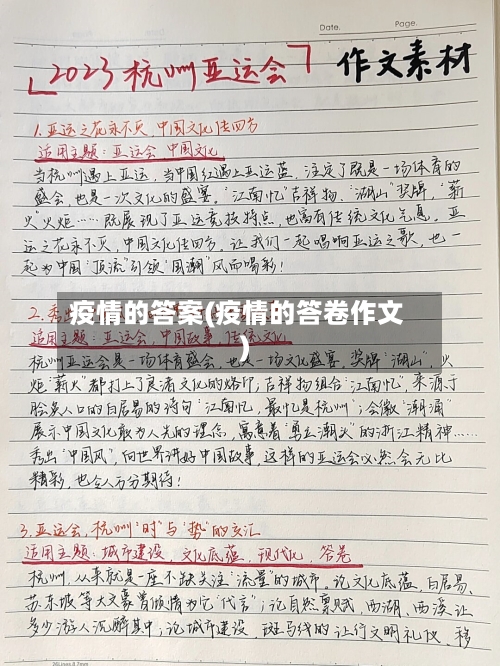 Date.
Page.
「2023杭州亚运会」作文素材
1.亚运之花永不灭,中国文化传四方
适用主题:亚运会 中国文化
当杭州遇上亚运,当中国红遇上亚运蓝,注定了既是一场体育的
盛会,也是一次文化的盛宴。“江南忆”吉祥物、“湖山”奖牌,“薪
火”火炬……既展现了亚运竞技特点,也富有传统文化气息。亚
运之花永不灭,中国文化传四方,让我们一起唱响亚运之歌,也一
起为中国“顶流”引领“国潮”风而喝彩!
疫情的答案(疫情的答卷作文
)
适用主题:亚运会,中国故事,传统文化
杭州亚运会是一场体育盛会,也是一场文化盛宴。奖牌“湖山”,火
炬“薪火”都打上了良渚文化的烙印,吉祥物组合“江南忆”,来源于
脍炙人口的白居易的诗句“江南忆,最忆是杭州”;会徽“潮涌”
展示中国文化敢为人先的理念,寓意着“勇立潮头”的浙江精神……
秀出“中国风”,向世界讲好中国故事,这样的亚运会必然会无比
精彩,也令人万分期待!
3.亚运会,杭州“时”与“势”的交汇
适用主题:城市建设,文化底蕴,现代化,答卷
杭州,从来就是一座不缺关注“流量”的城市。论文化底蕴,白居易、
苏东坡等大文豪曾倾情为它“代言”;论自然禀赋,西湖,西溪让
多少游人沉醉其中;论城市建设,斑马线的让行文明礼仪、移
26Lines 8.7mm